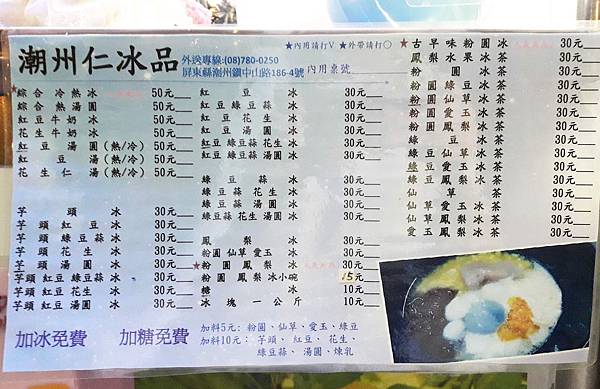 潮州仁冰品
外送專線:(08)780-0250
屏東縣潮州鎮中山路186-4號
★內用請打V ★外帶請打○
內用桌號
★綜合 冷熱冰 50元
綜合 熱湯圓 50元
紅豆牛奶冰 50元
花生牛奶冰 50元
紅豆湯圓(熱/冷) 50元
紅豆湯(熱/冷) 50元
花生仁湯(熱/冷) 50元
芋頭冰 30元
芋頭紅豆冰 30元
芋頭綠豆蒜冰 30元
芋頭花生冰 30元
芋頭湯圓冰 30元
芋頭紅豆綠豆蒜冰 30元
芋頭紅豆花生冰 30元
芋頭紅豆湯圓冰 30元
紅豆冰 30元
紅豆綠豆蒜冰 30元
紅豆花生冰 30元
紅豆湯圓冰 30元
紅豆綠豆蒜花生冰 30元
綠豆蒜冰 30元
綠豆蒜花生冰 30元
綠豆蒜湯圓冰 30元
綠豆蒜花生湯圓冰 30元
鳳梨冰 30元
粉圓仙草愛玉冰 30元
★粉圓鳳梨冰 30元
粉圓鳳梨冰小碗 15元
糖冰 10元
冰塊一公斤 10元
★古早味粉圓冰 30元
鳳梨水果冰茶 30元
粉圓冰茶 30元
粉圓綠豆冰茶 30元
粉圓仙草冰茶 30元
粉圓愛玉冰茶 30元
粉圓鳳梨冰茶 30元
綠豆冰茶 30元
綠豆仙草冰茶 30元
綠豆愛玉冰茶 30元
綠豆鳳梨冰茶 30元
仙草冰茶 30元
仙草愛玉冰茶 30元
仙草鳳梨冰茶 30元
愛玉鳳梨冰茶 30元
加冰免費 加糖免費
加料5元: 粉圓、仙草、愛玉、綠豆
加料10元: 芋頭、紅豆、花生、
綠豆蒜、湯圓、煉乳